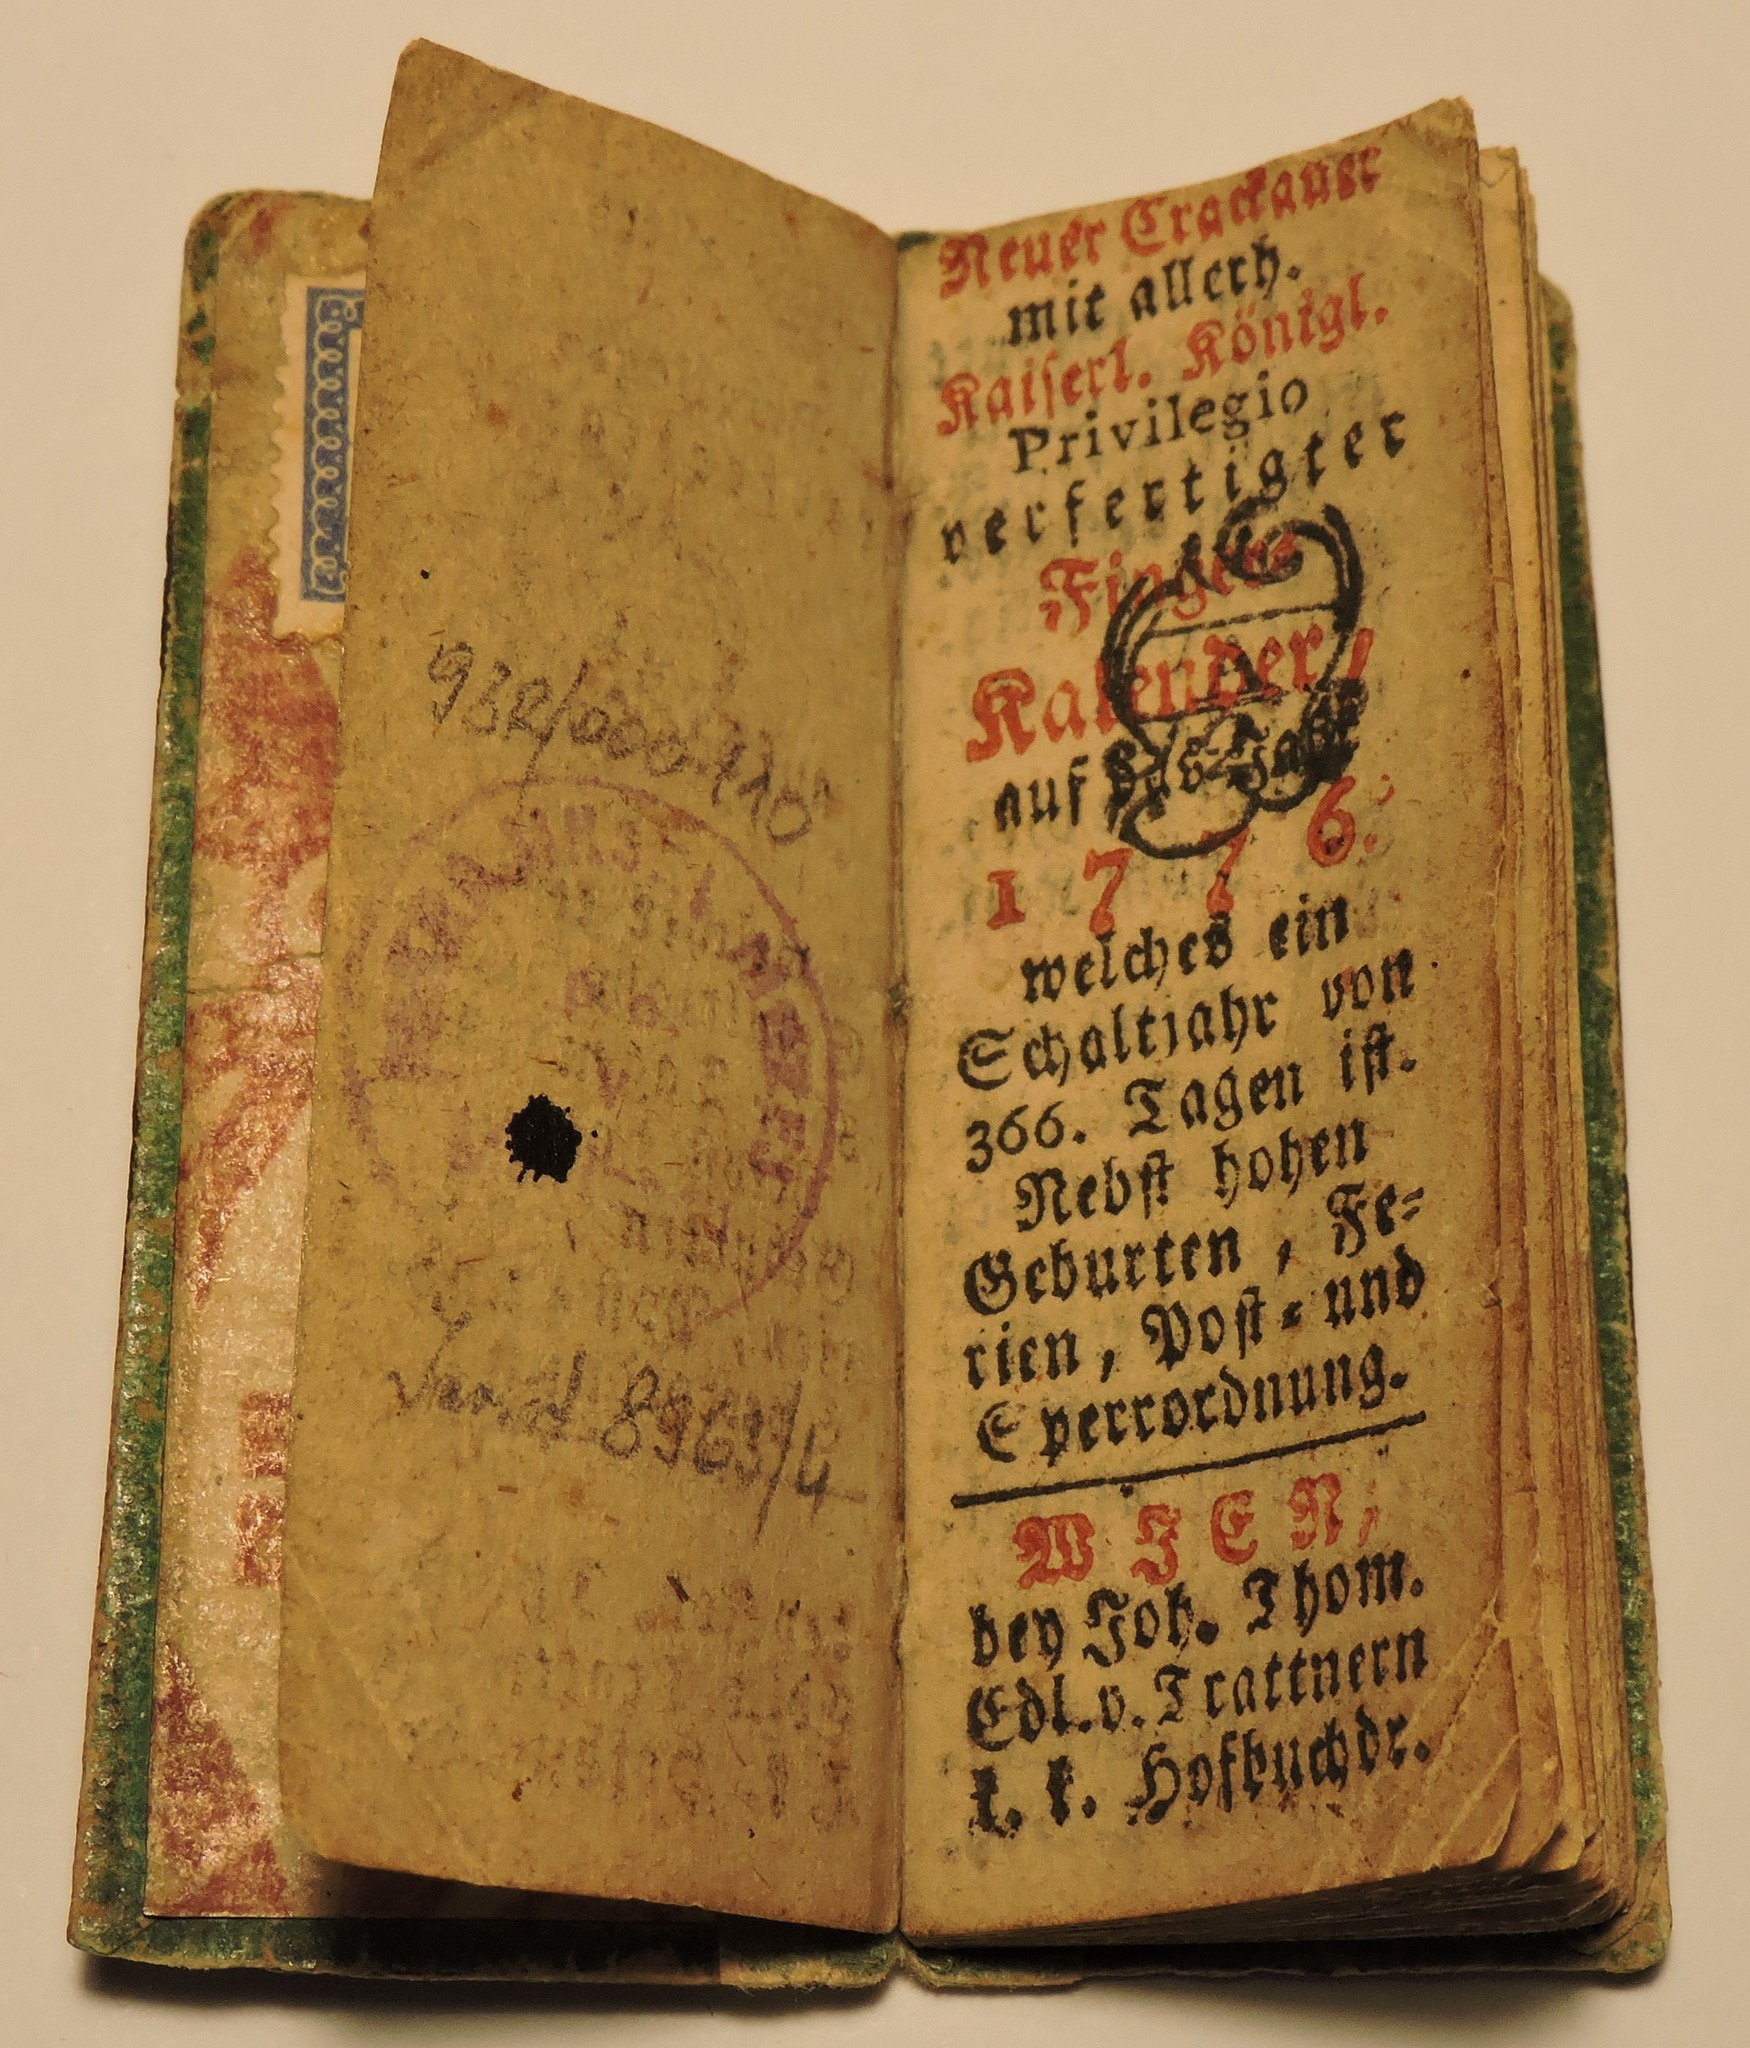 932/000.110
Inv. N 8963/4
Neuer Crackauer
mit allerh.
Kaiserl. Königl.
Privilegio
verfertigter
Finger
Kalender,
auf das Jahr
1776.
welches ein
Schaltjahr von
366. Tagen ist.
Nebst hohen
Geburten, Fe-
rien, Post- und
Sperrordnung.
WIEN,
bey Joh. Thom.
Edl. v. Trattnern
k. k. Hofbuchdr.